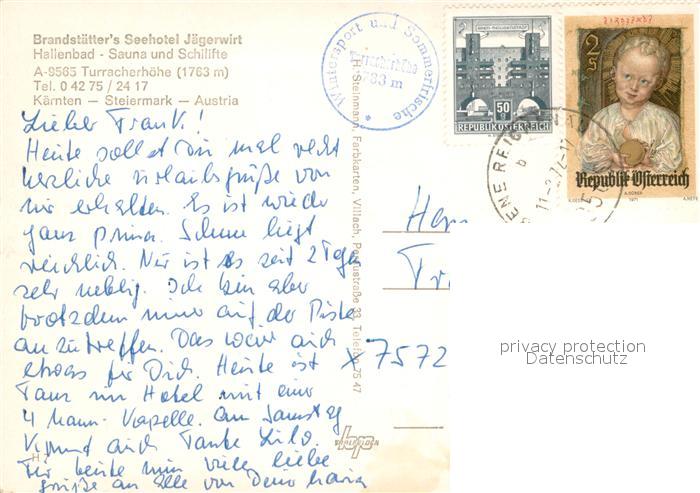 Brandstätter's Seehotel Jägerwirt
Hallenbad - Sauna und Schilifte
A-9565 Turracherhöhe (1763 m)
Tel. 0 42 75 / 24 17
Kärnten — Steiermark — Austria
Wintersport und Sommerfrische
Turracherhöhe
1763 m
H. Steinmann, Farbkarten, Villach, Telefon 75 47
50 g
REPUBLIK ÖSTERREICH
2 S
Republik Österreich
1971
Lieber Frank!
Heute sollst Du mal recht
herzliche Urlaubsgrüße von
mir erhalten. Es ist wieder
ganz prima. Schnee liegt
reichlich. Nur ist es seit 2 Tagen
sehr neblig. Ich bin aber
trotzdem immer auf der Piste
anzutreffen. Das wäre auch
etwas für Dich. Heute ist
Tanz im Hotel mit einer
4 Mann-Kapelle. Am Samstag
kommt auch Tante Lilo.
Für heute nun viele liebe
Grüße an alle von Deine Maria
X 7572
privacy protection
Datenschutz